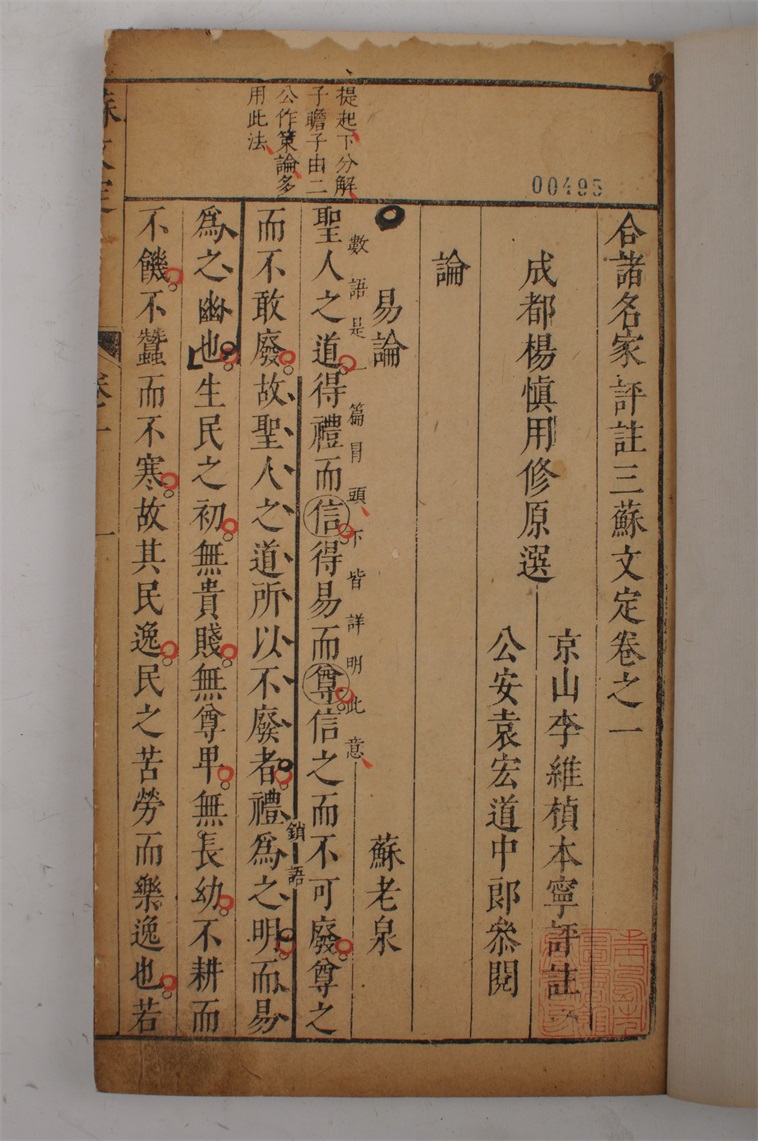 合諸名家評註三蘇文定卷之一
成都楊慎用修原選
京山李維楨本寧評註
公安袁宏道中郎叅閱
論
易論 蘇老泉
數語是一篇冒頭下皆詳明此意
聖人之道得禮而信得易而尊信之而不可廢尊之
鎖語
而不敢廢故聖人之道所以不廢者禮爲之明而易
爲之幽也生民之初無貴賤無尊卑無長幼不耕而
不饑不蠶而不寒故其民逸民之苦勞而樂逸也若
提起下分解
子瞻子由二
公作策論多
用此法
00495
卷之一
一